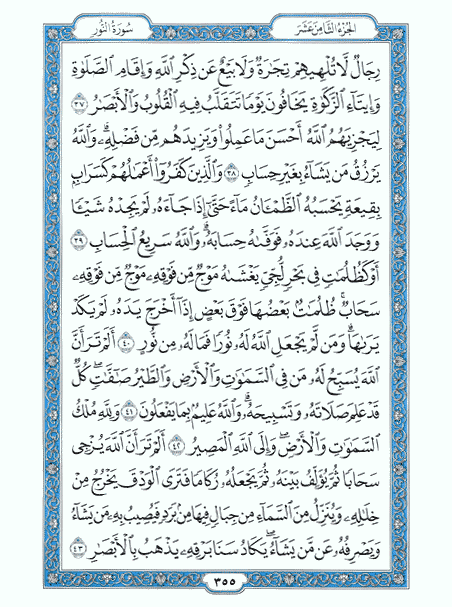 الجزء الثامن عشر
سورة النور
رِجَالٌ لَّا تُلْهِيهِمْ تِجَٰرَةٌ وَلَا بَيْعٌ عَن ذِكْرِ ٱللَّهِ وَإِقَامِ ٱلصَّلَوٰةِ
وَإِيتَآءِ ٱلزَّكَوٰةِ يَخَافُونَ يَوْمًا تَتَقَلَّبُ فِيهِ ٱلْقُلُوبُ وَٱلْأَبْصَٰرُ ٣٧
لِيَجْزِيَهُمُ ٱللَّهُ أَحْسَنَ مَا عَمِلُوا۟ وَيَزِيدَهُم مِّن فَضْلِهِۦ ۗ وَٱللَّهُ
يَرْزُقُ مَن يَشَآءُ بِغَيْرِ حِسَابٍ ٣٨ وَٱلَّذِينَ كَفَرُوٓا۟ أَعْمَٰلُهُمْ كَسَرَابٍۭ
بِقِيعَةٍ يَحْسَبُهُ ٱلظَّمْـَٔانُ مَآءً حَتَّىٰٓ إِذَا جَآءَهُۥ لَمْ يَجِدْهُ شَيْـًٔا
وَوَجَدَ ٱللَّهَ عِندَهُۥ فَوَفَّىٰهُ حِسَابَهُۥ ۗ وَٱللَّهُ سَرِيعُ ٱلْحِسَابِ ٣٩
أَوْ كَظُلُمَٰتٍ فِى بَحْرٍ لُّجِّىٍّ يَغْشَىٰهُ مَوْجٌ مِّن فَوْقِهِۦ مَوْجٌ مِّن فَوْقِهِۦ
سَحَابٌ ۚ ظُلُمَٰتٌۢ بَعْضُهَا فَوْقَ بَعْضٍ إِذَآ أَخْرَجَ يَدَهُۥ لَمْ يَكَدْ
يَرَىٰهَا ۗ وَمَن لَّمْ يَجْعَلِ ٱللَّهُ لَهُۥ نُورًا فَمَا لَهُۥ مِن نُّورٍ ٤٠ أَلَمْ تَرَ أَنَّ
ٱللَّهَ يُسَبِّحُ لَهُۥ مَن فِى ٱلسَّمَٰوَٰتِ وَٱلْأَرْضِ وَٱلطَّيْرُ صَٰٓفَّٰتٍ ۖ كُلٌّ
قَدْ عَلِمَ صَلَاتَهُۥ وَتَسْبِيحَهُۥ ۗ وَٱللَّهُ عَلِيمٌۢ بِمَا يَفْعَلُونَ ٤١ وَلِلَّهِ مُلْكُ
ٱلسَّمَٰوَٰتِ وَٱلْأَرْضِ ۖ وَإِلَى ٱللَّهِ ٱلْمَصِيرُ ٤٢ أَلَمْ تَرَ أَنَّ ٱللَّهَ يُزْجِى
سَحَابًا ثُمَّ يُؤَلِّفُ بَيْنَهُۥ ثُمَّ يَجْعَلُهُۥ رُكَامًا فَتَرَى ٱلْوَدْقَ يَخْرُجُ مِنْ
خِلَٰلِهِۦ وَيُنَزِّلُ مِنَ ٱلسَّمَآءِ مِن جِبَالٍ فِيهَا مِنۢ بَرَدٍ فَيُصِيبُ بِهِۦ مَن يَشَآءُ
وَيَصْرِفُهُۥ عَن مَّن يَشَآءُ ۖ يَكَادُ سَنَا بَرْقِهِۦ يَذْهَبُ بِٱلْأَبْصَٰرِ ٤٣
٣٥٥